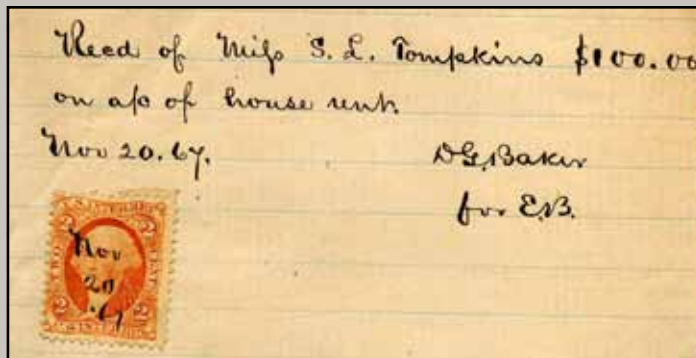 Recd of Miss S. L. Tompkins $100.00
on a/c of house rent.
Nov 20. 67.
D G. Baker
for E.B.
U.S. INTER. REV.
2
2
Nov
20
.67
2
2